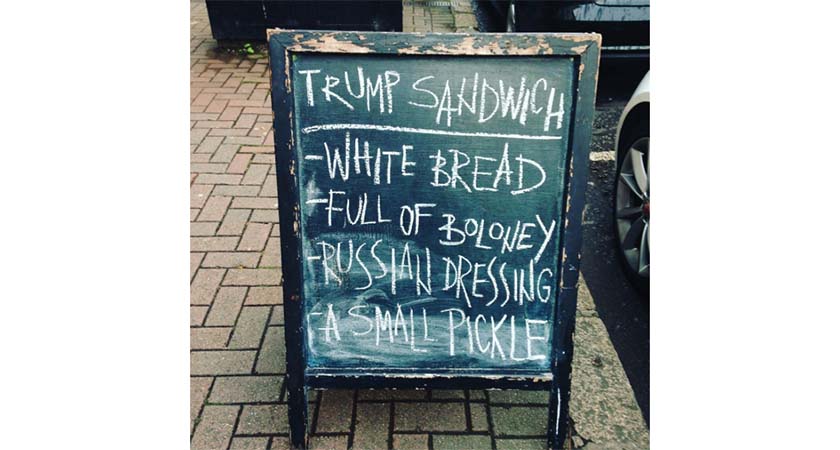 TRUMP SANDWICH
-WHITE BREAD
-FULL OF BOLONEY
-RUSSIAN DRESSING
-A SMALL PICKLE